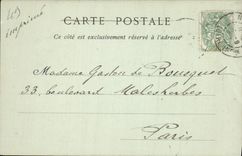 imprimé
CARTE POSTALE
Ce côté est exclusivement réservé à l'adresse
Madame Gaston de Bousquet
33, boulevard Malesherbes
Paris